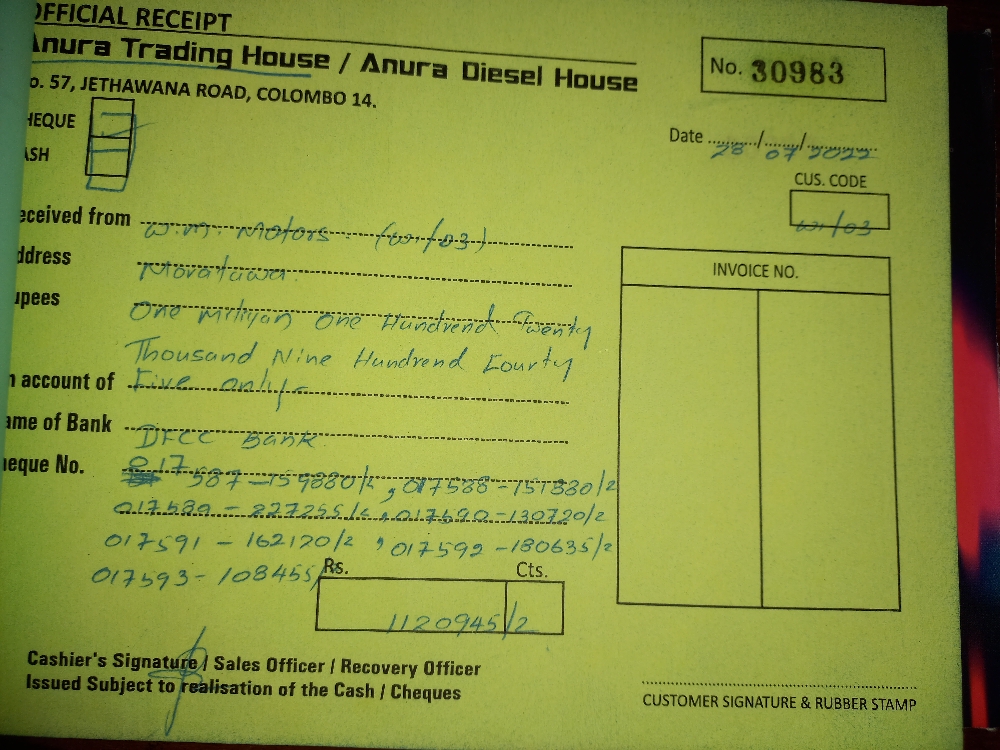 OFFICIAL RECEIPT
Anura Trading House / Anura Diesel House
No. 30983
o. 57, JETHAWANA ROAD, COLOMBO 14.
HEQUE
ASH
Date 28/07/2022
CUS. CODE
w1/03
eceived from W.M. Motors (w1/03)
ddress Moratuwa
INVOICE NO.
upees One Miliyan One Hundrend Twenty
Thousand Nine Hundrend Fourty
n account of Five only/-
ame of Bank DFCC Bank
heque No. 017587-159880/2, 017588-151880/2
017589 - 227255/2, 017590-130720/2
017591 - 162120/2, 017592-180635/2
017593-108455/
Rs. Cts.
1120945/2
Cashier's Signature / Sales Officer / Recovery Officer
Issued Subject to realisation of the Cash / Cheques
CUSTOMER SIGNATURE & RUBBER STAMP